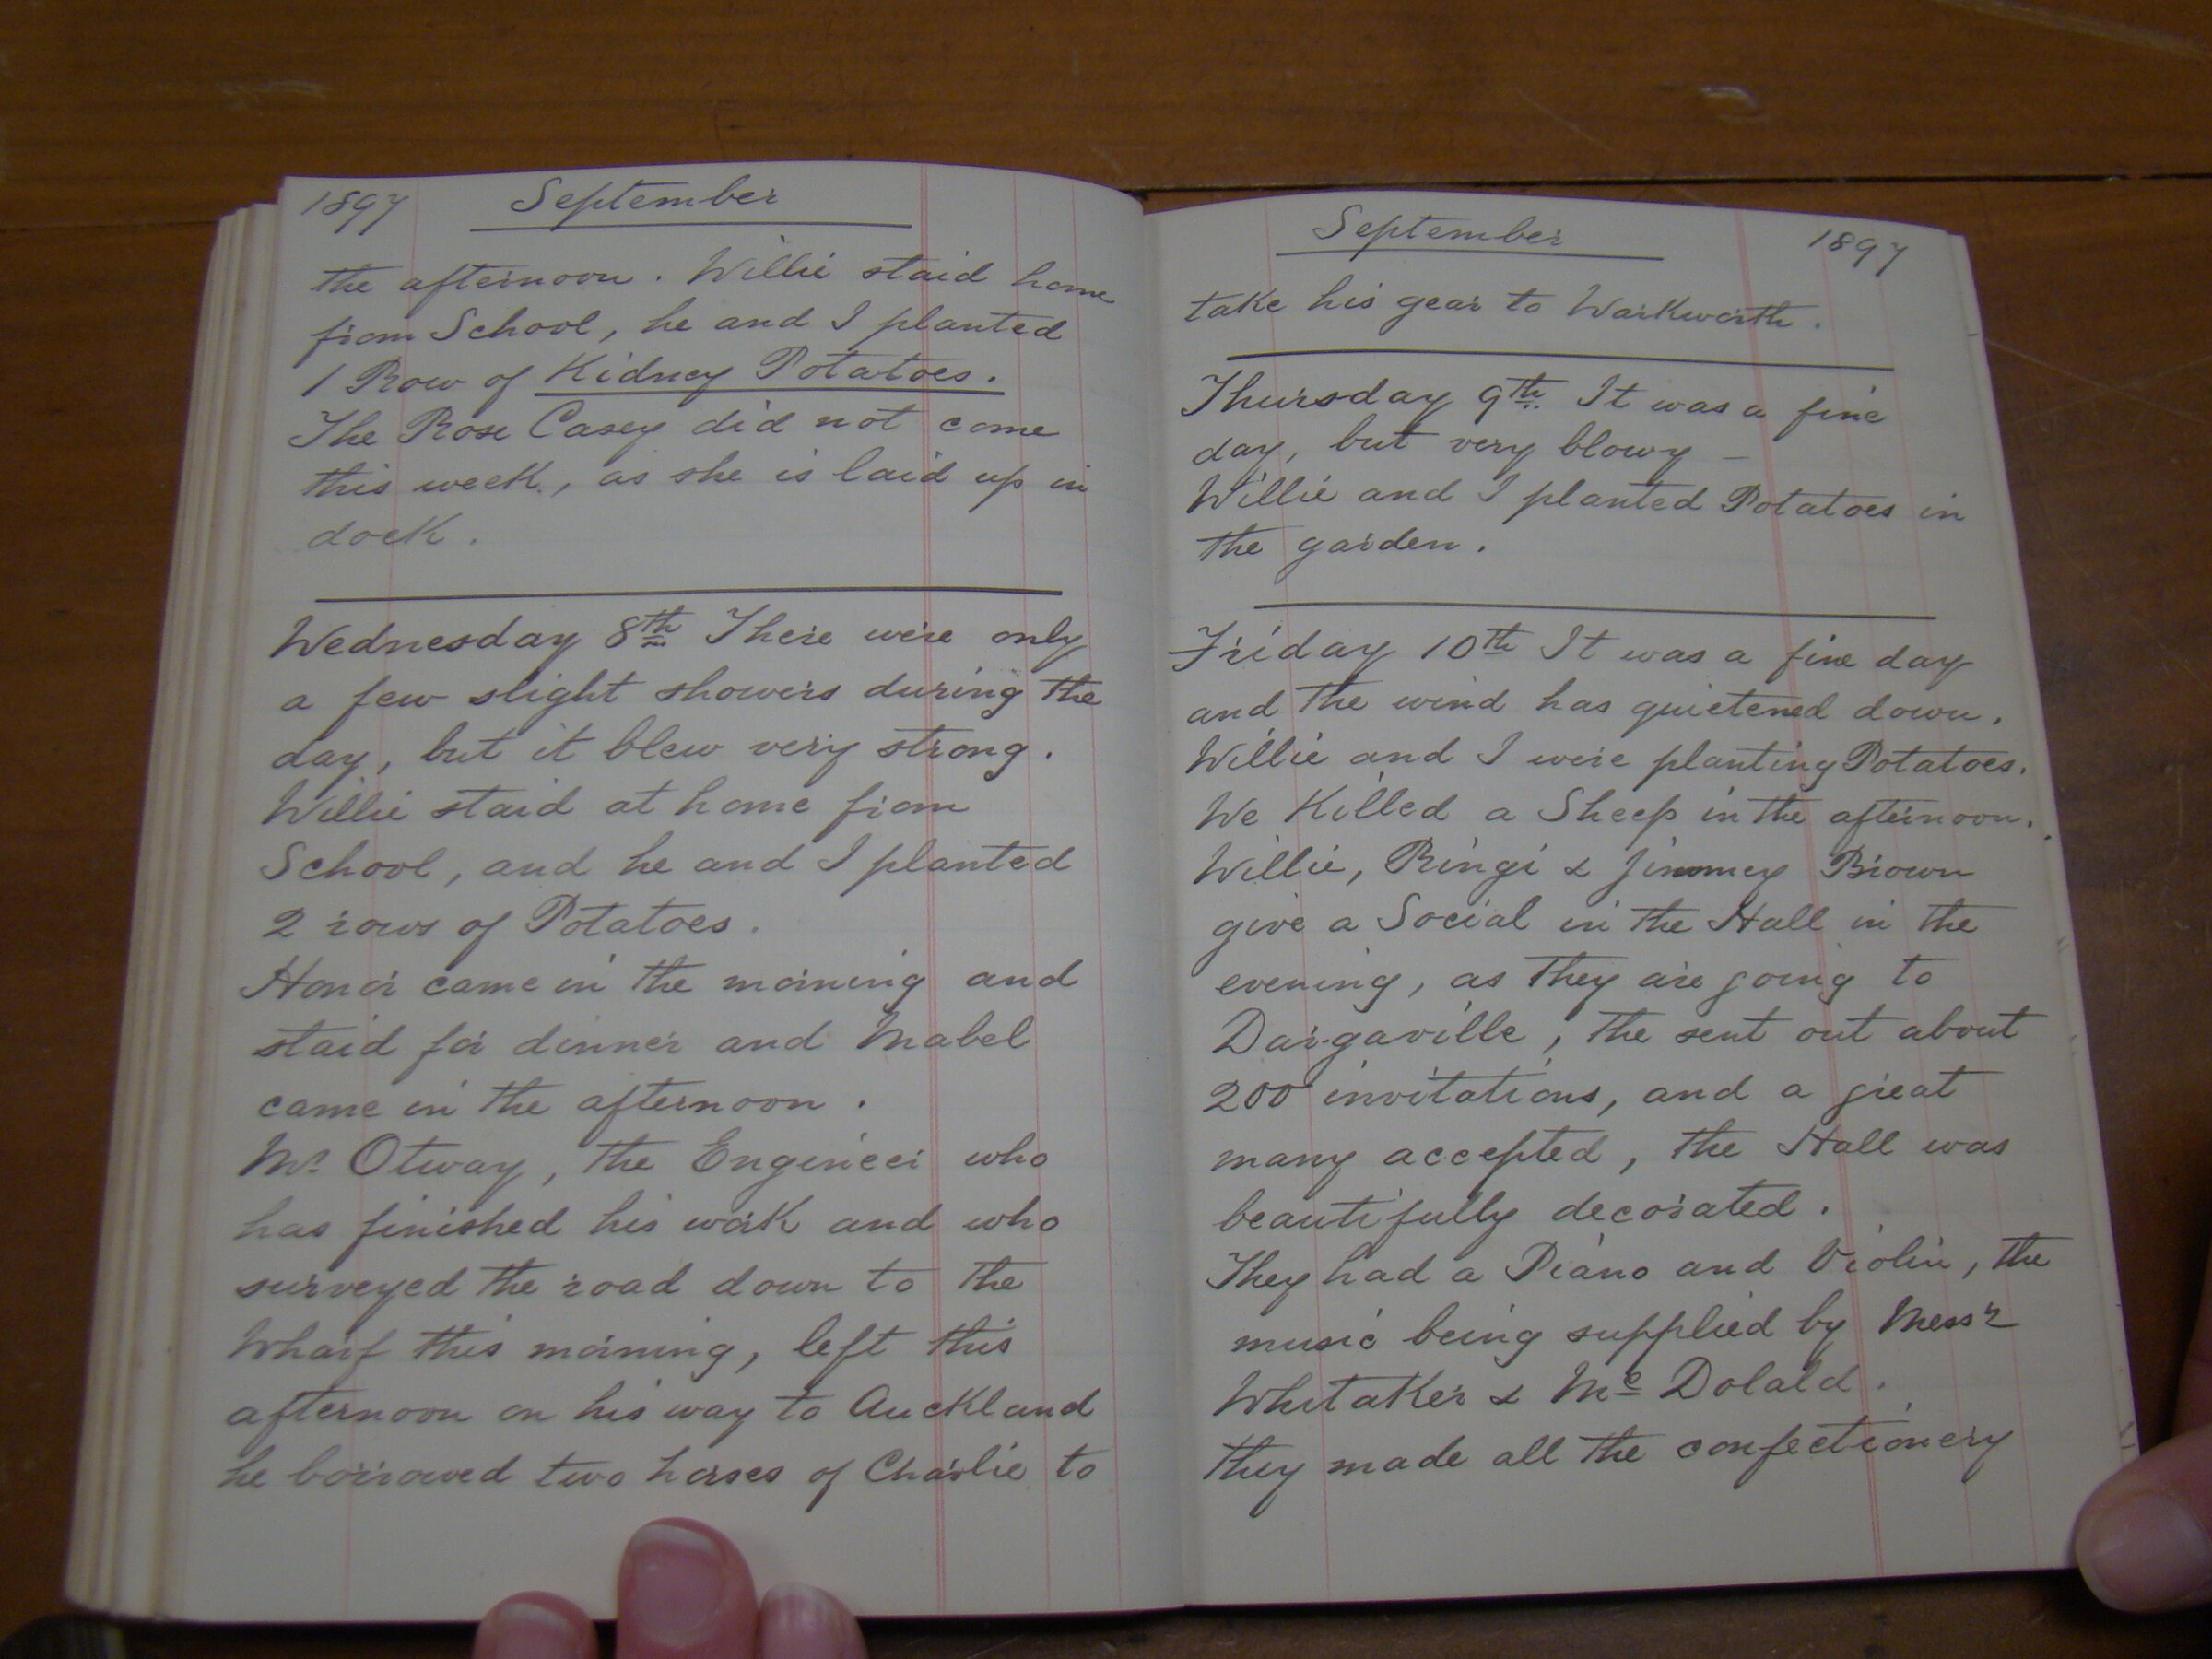 1897 September
the afternoon. Willie staid home
from School, he and I planted
1 Row of Kidney Potatoes.
The Rose Casey did not come
this week, as she is laid up in
dock.
Wednesday 8th There were only
a few slight showers during the
day, but it blew very strong.
Willie staid at home from
School, and he and I planted
2 rows of Potatoes.
Honor came in the morning and
staid for dinner and Mabel
came in the afternoon.
Mr Otway, the Engineer who
has finished his work and who
surveyed the road down to the
Wharf this morning, left this
afternoon on his way to Auckland
he borrowed two horses of Charlie to
September 1897
take his gear to Warkworth.
Thursday 9th. It was a fine
day, but very blowy –
Willie and I planted Potatoes in
the garden.
Friday 10th It was a fine day
and the wind has quietened down.
Willie and I were planting Potatoes.
We Killed a Sheep in the afternoon.
Willie, Ringi & Jimmey Brown
give a Social in the Hall in the
evening, as they are going to
Dargaville, the sent out about
200 invitations, and a great
many accepted, the Hall was
beautifully decorated.
They had a Piano and Violin, the
music being supplied by Messr
Whitaker & Mc Dolald.
they made all the confectionery